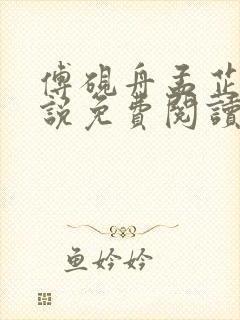 傅硯舟孟芷
說免費閱讀
鱼妗妗